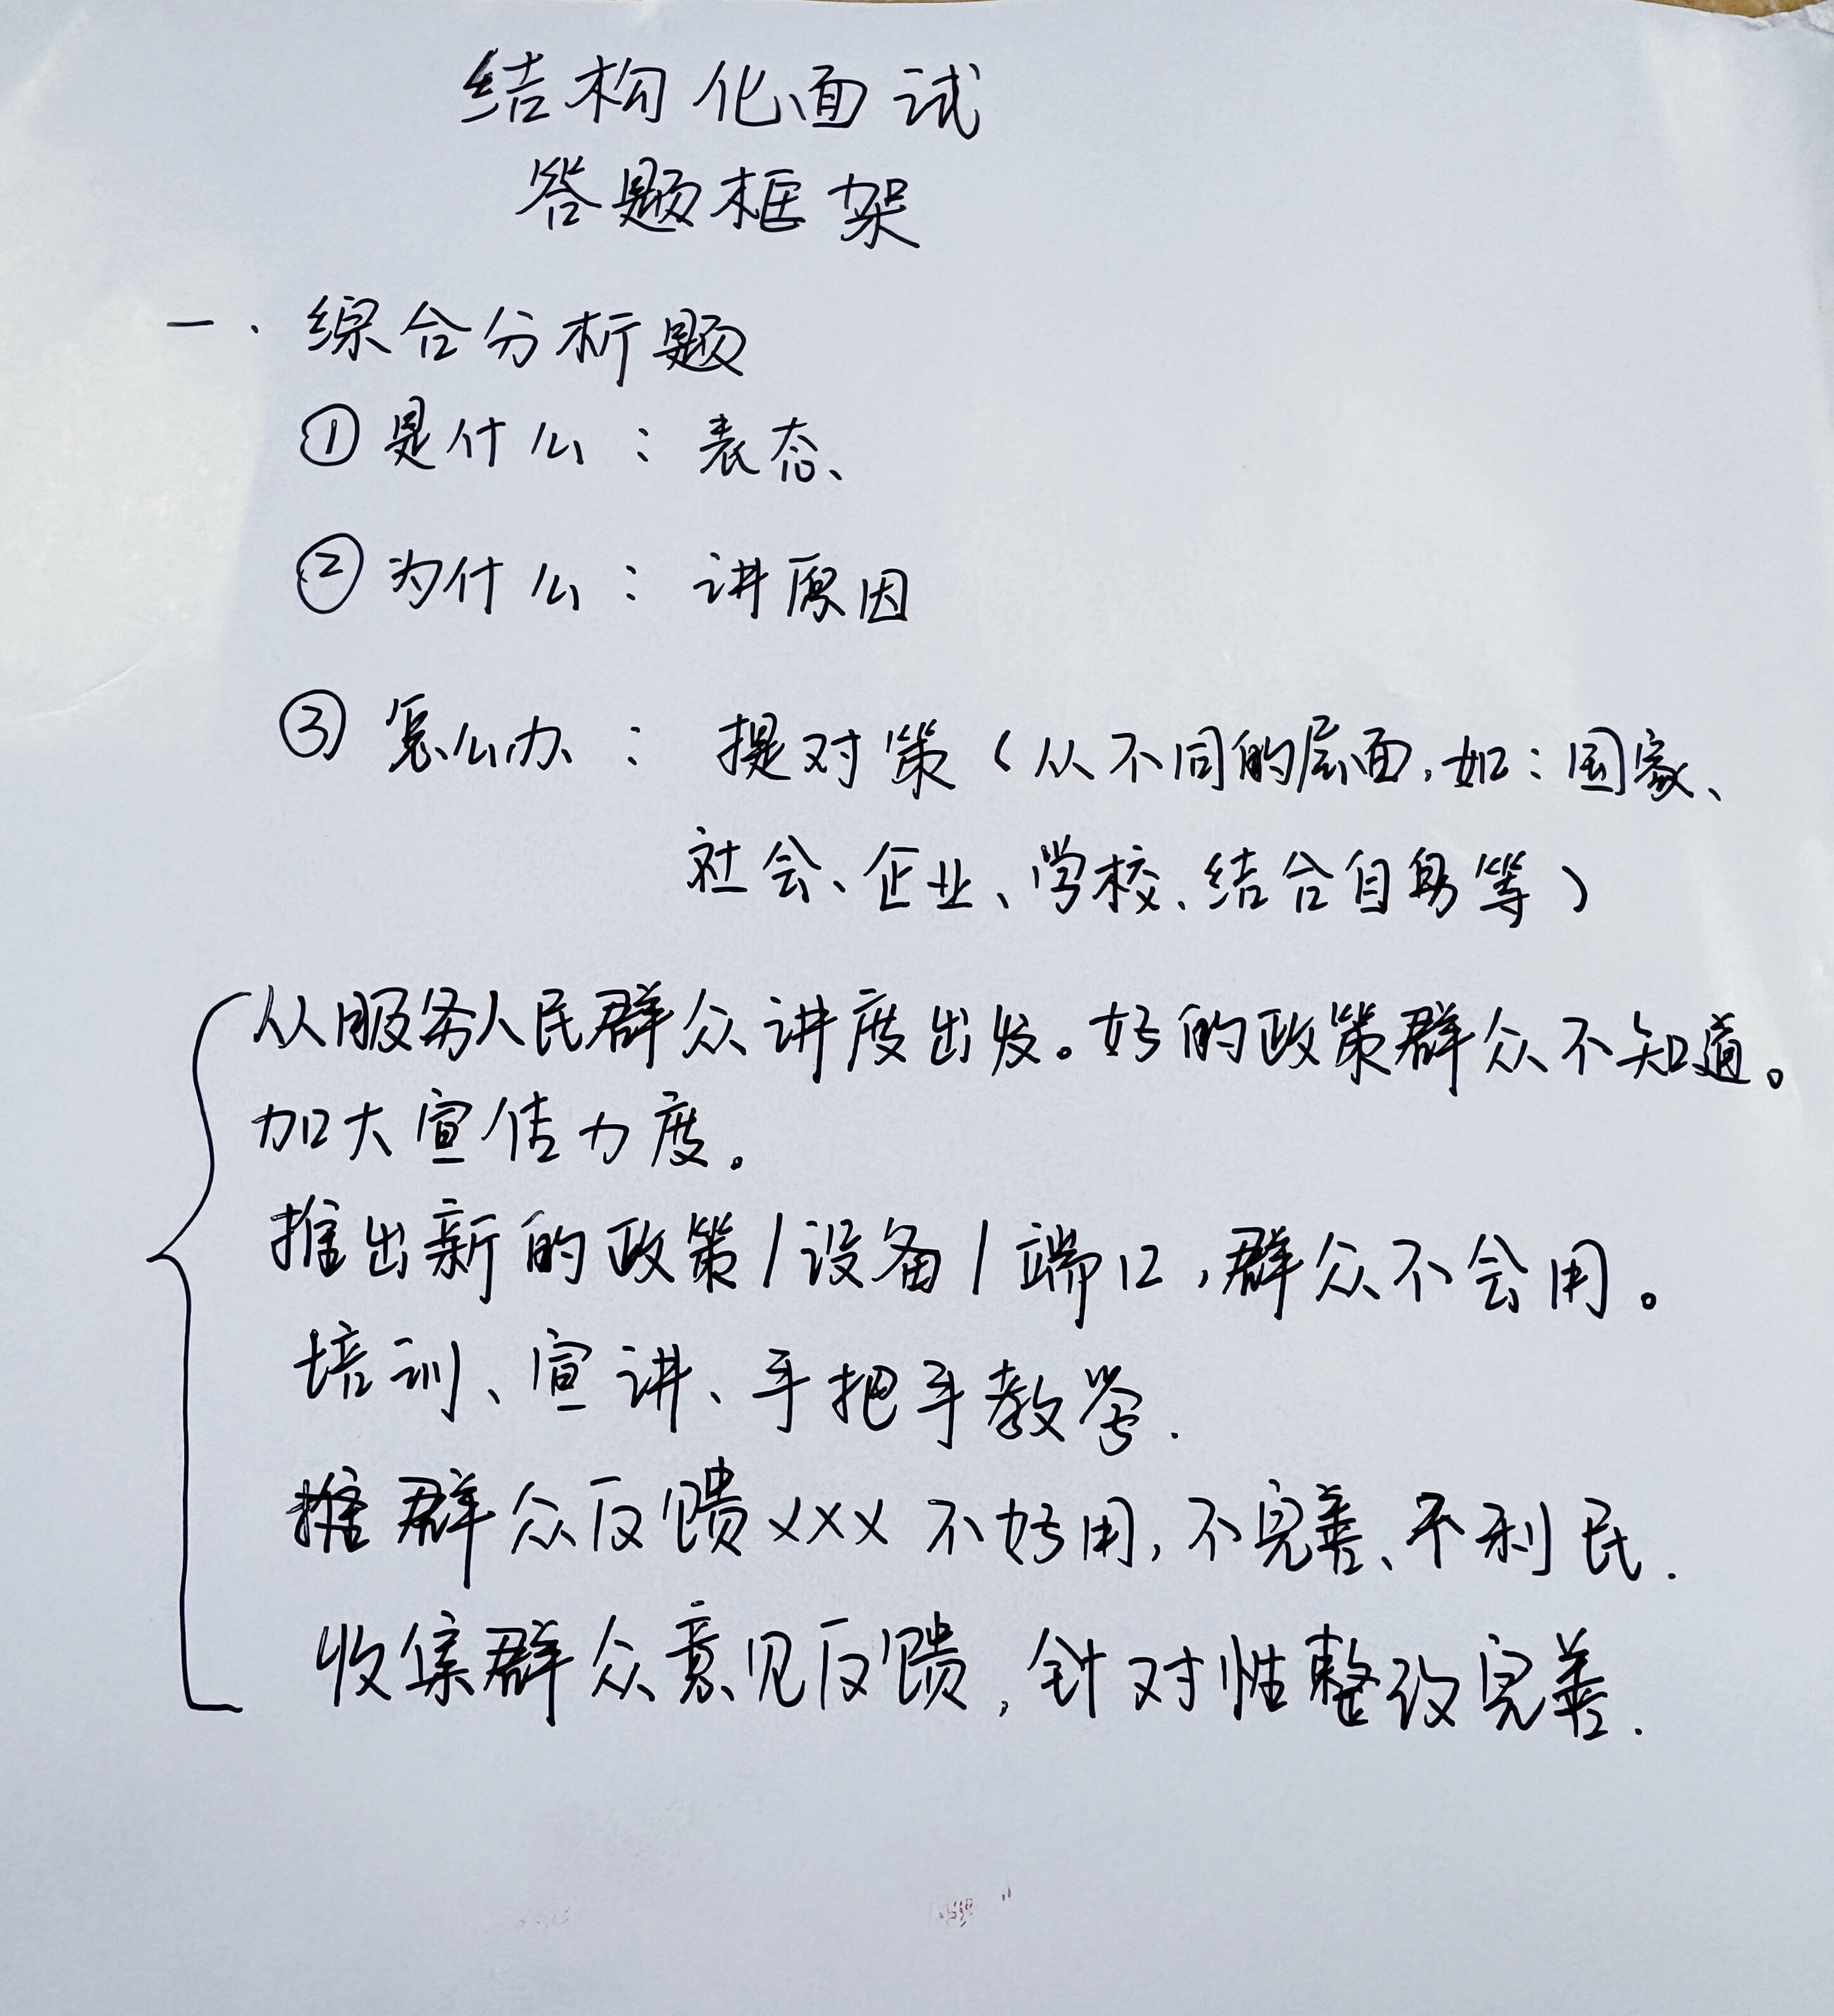 结构化面试
答题框架
一. 综合分析题
① 是什么：表态、
② 为什么：讲原因
③ 怎么办：提对策（从不同的层面，如：国家、
社会、企业、学校、结合自身等）
从服务人民群众讲度出发。好的政策群众不知道。
加大宣传力度。
推出新的政策/设备/端口，群众不会用。
培训、宣讲、手把手教学.
群众反馈xxx不好用，不完善、不利民.
收集群众意见反馈，针对性整改完善.